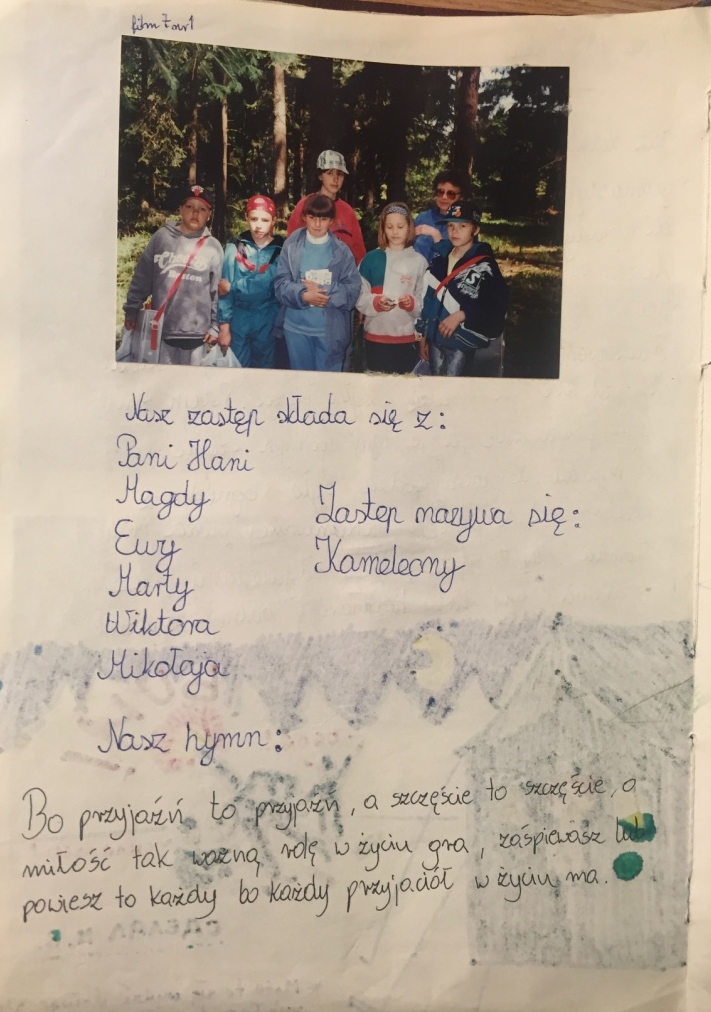 film 7 nr 1
Nasz zastęp składa się z:
Pani Hani
Magdy
Ewy
Marty
Wiktora
Mikołaja
Zastęp nazywa się:
Kameleony
Nasz hymn:
Bo przyjaźń to przyjaźń, a szczęście to szczęście, a
miłość tak ważną rolę w życiu gra, zaśpiewasz lub
powiesz to każdy bo każdy przyjaciół w życiu ma.